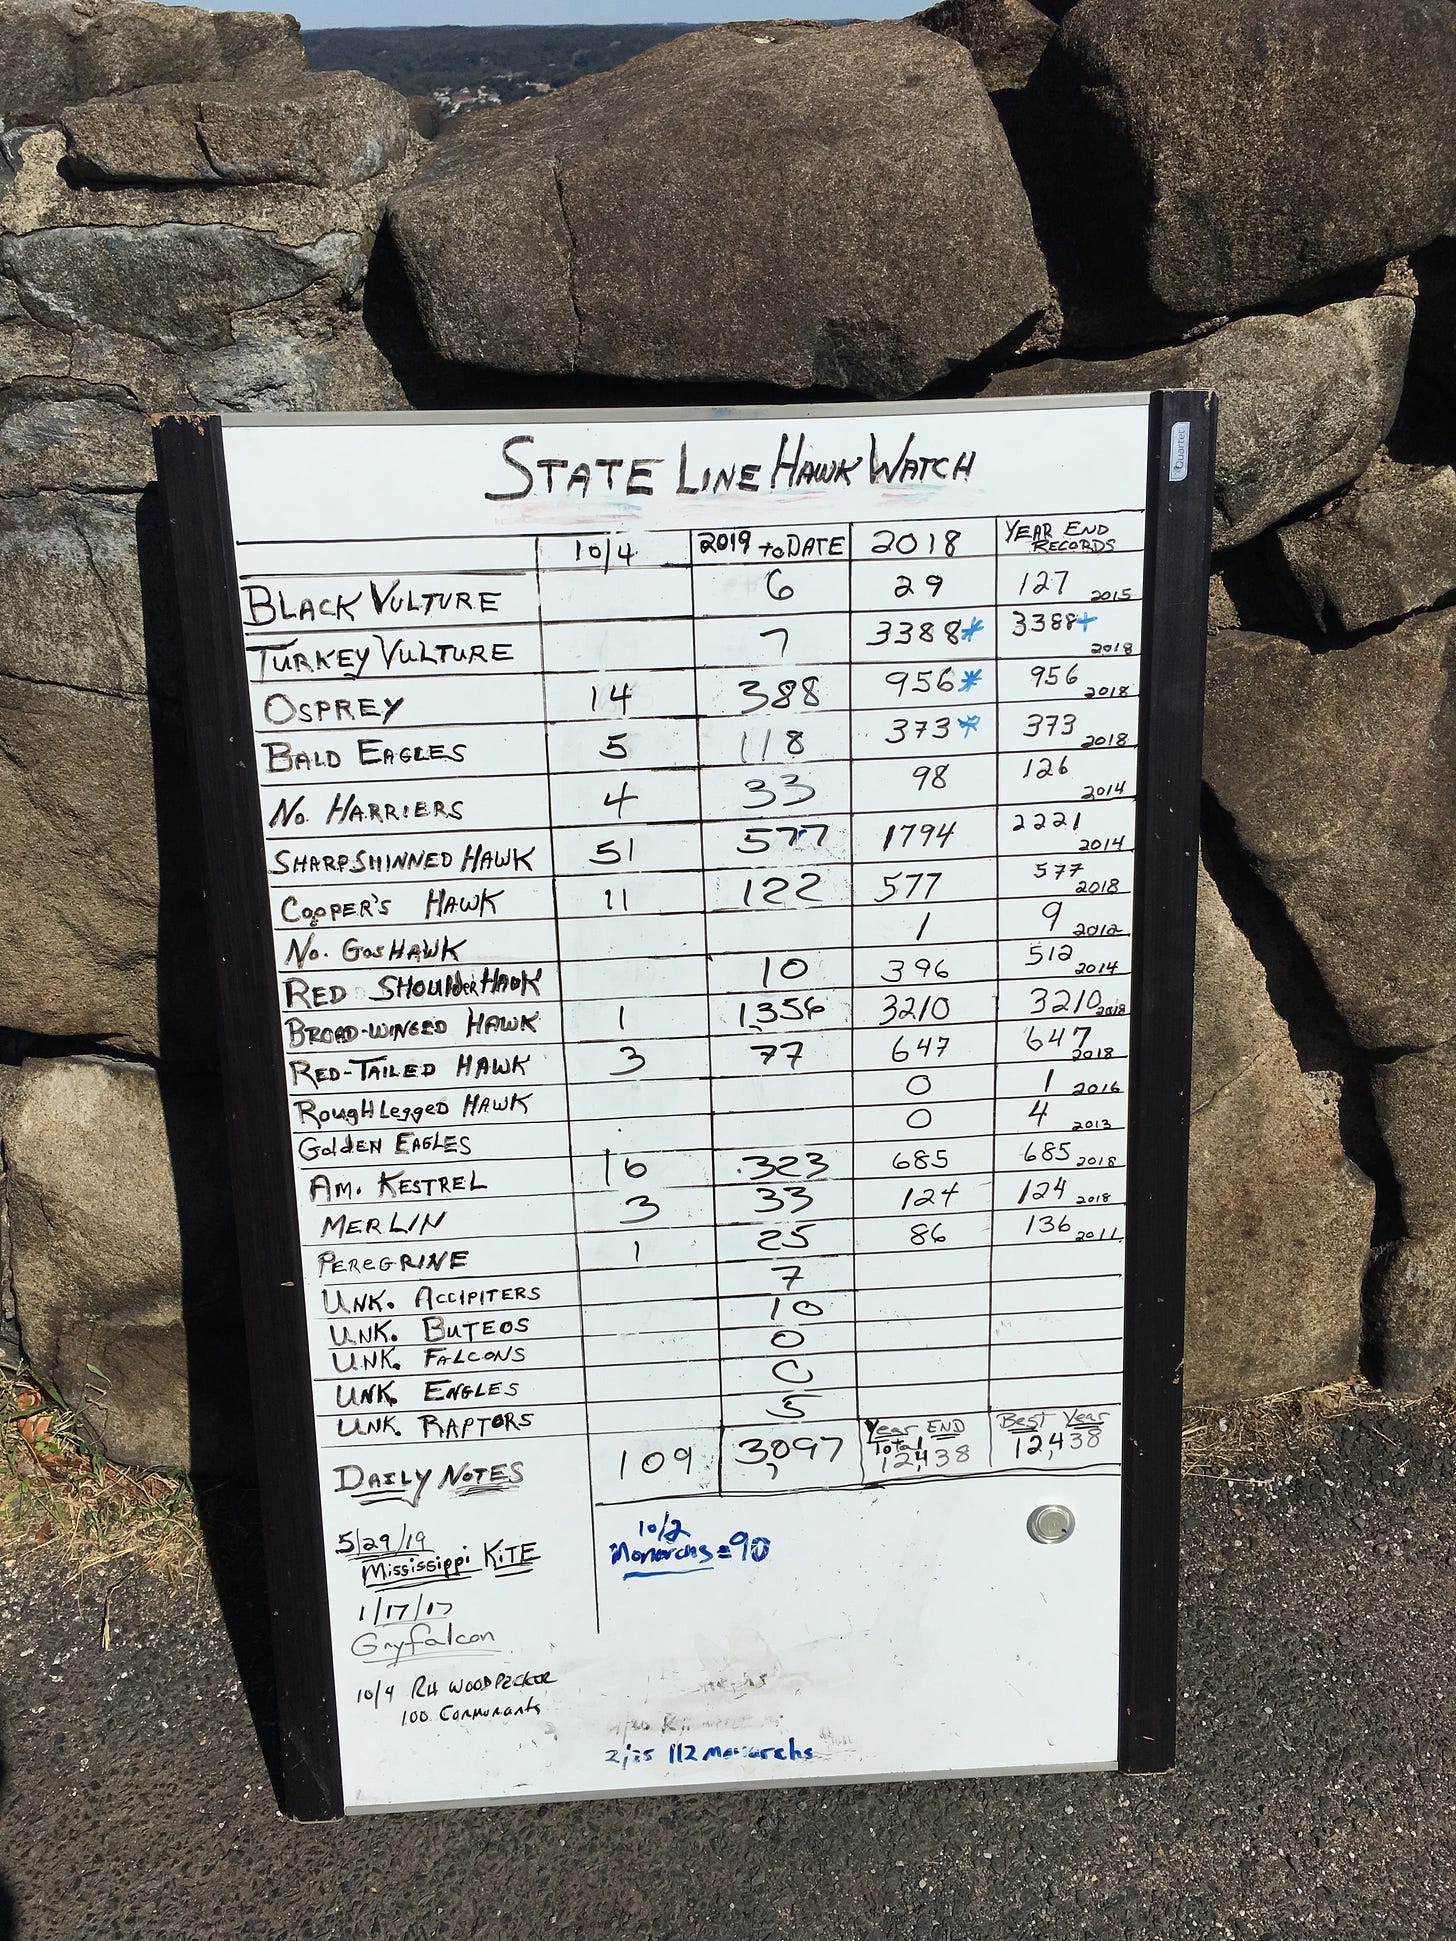 Quartet
STATE LINE HAWK WATCH
10/4 2019 to DATE 2018 YEAR END RECORDS
BLACK VULTURE 6 29 127 2015
TURKEY VULTURE 7 3388* 3388+ 2018
OSPREY 14 388 956* 956 2018
BALD EAGLES 5 118 373* 373 2018
No. HARRIERS 4 33 98 126 2014
SHARPSHINNED HAWK 51 577 1794 2221 2014
COOPER'S HAWK 11 122 577 577 2018
No. GosHAWK 1 9 2012
RED SHOULderHAWK 10 396 512 2014
BROAD-WINGED HAWK 1 1,356 3210 3210 2018
RED-TAILED HAWK 3 77 647 647 2018
RougHLegged HAWK 0 1 2016
GolDEN EAGLES 0 4 2013
AM. KESTREL 16 323 685 685 2018
MERLIN 3 33 124 124 2018
PEREGRINE 1 25 86 136 2011
UNK. ACCIPITERS 7
UNK. BUTEOS 10
UNK. FALCONS 0
UNK. ENGLES 0
UNK. RAPTORS 5
109 3,097 Year END Total 12,438 Best Year 12,438
DAILY NOTES
5/29/19
Mississippi KITE
1/17/17
Gryfalcon
10/4 RH WOODPECKER
100 Cormorants
10/2
Monarchs = 90
112 Monarchs